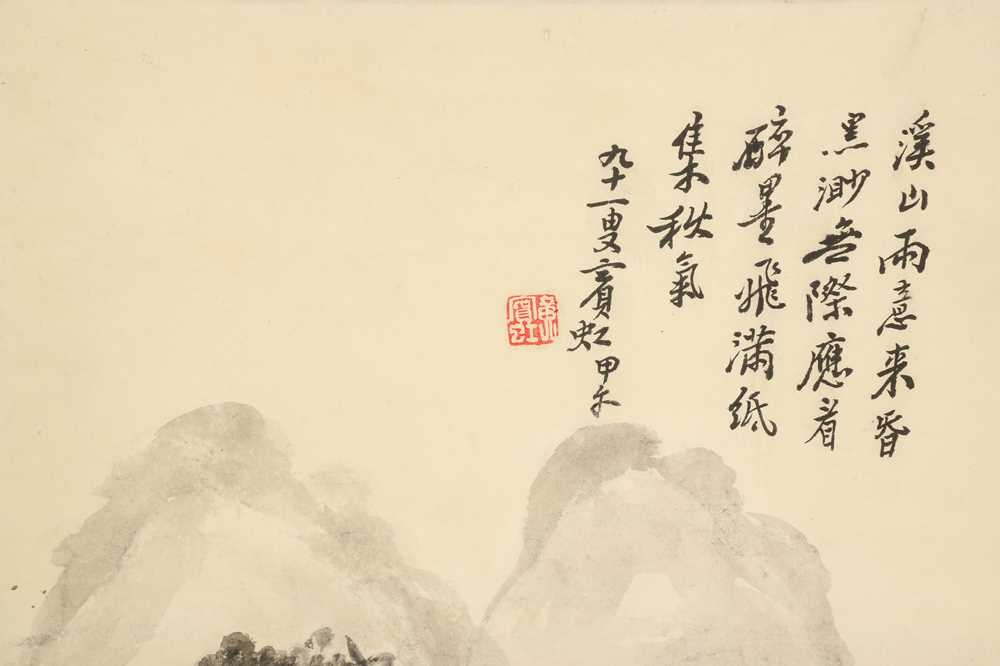 溪山雨意来昏
黑渺無際應看
醉墨飛滿紙
集秋氣
九十一叟賓虹甲午
黃賓虹